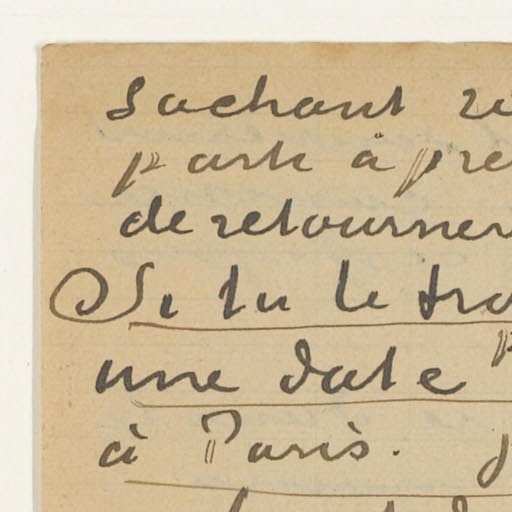 Sachant
parte à
de retourner
Si tu le
une date
à Paris.